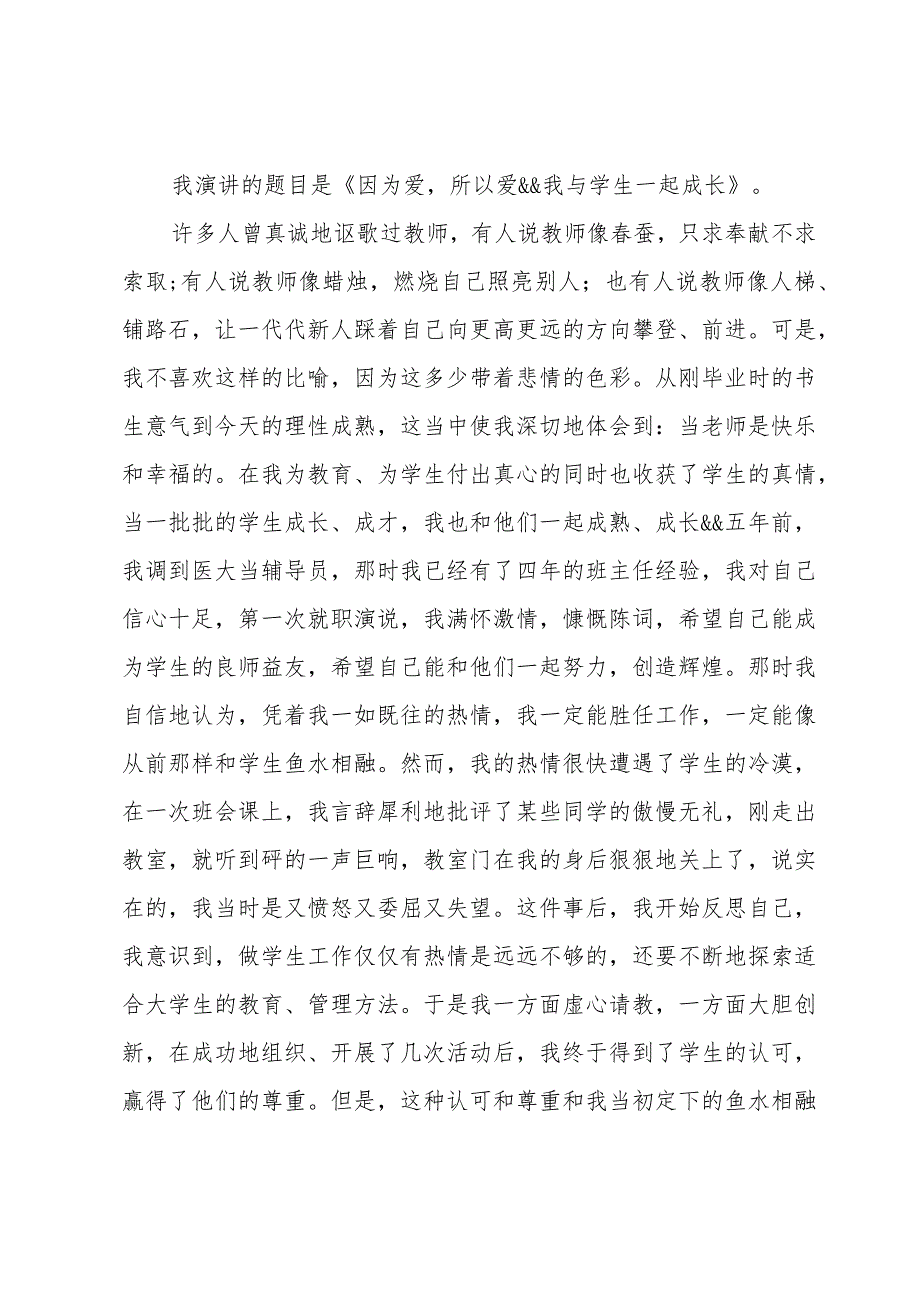 我演讲的题目是《因为爱，所以爱&&我与学生一起成长》。
许多人曾真诚地讴歌过教师，有人说教师像春蚕，只求奉献不求
索取;有人说教师像蜡烛，燃烧自己照亮别人；也有人说教师像人梯、
铺路石，让一代代新人踩着自己向更高更远的方向攀登、前进。可是，
我不喜欢这样的比喻，因为这多少带着悲情的色彩。从刚毕业时的书
生意气到今天的理性成熟，这当中使我深切地体会到：当老师是快乐
和幸福的。在我为教育、为学生付出真心的同时也收获了学生的真情，
当一批批的学生成长、成才，我也和他们一起成熟、成长&&五年前，
我调到医大当辅导员，那时我已经有了四年的班主任经验，我对自己
信心十足，第一次就职演说，我满怀激情，慷慨陈词，希望自己能成
为学生的良师益友，希望自己能和他们一起努力，创造辉煌。那时我
自信地认为，凭着我一如既往的热情，我一定能胜任工作，一定能像
从前那样和学生鱼水相融。然而，我的热情很快遭遇了学生的冷漠，
在一次班会课上，我言辞犀利地批评了某些同学的傲慢无礼，刚走出
教室，就听到砰的一声巨响，教室门在我的身后狠狠地关上了，说实
在的，我当时是又愤怒又委屈又失望。这件事后，我开始反思自己，
我意识到，做学生工作仅仅有热情是远远不够的，还要不断地探索适
合大学生的教育、管理方法。于是我一方面虚心请教，一方面大胆创
新，在成功地组织、开展了几次活动后，我终于得到了学生的认可，
赢得了他们的尊重。但是，这种认可和尊重和我当初定下的鱼水相融